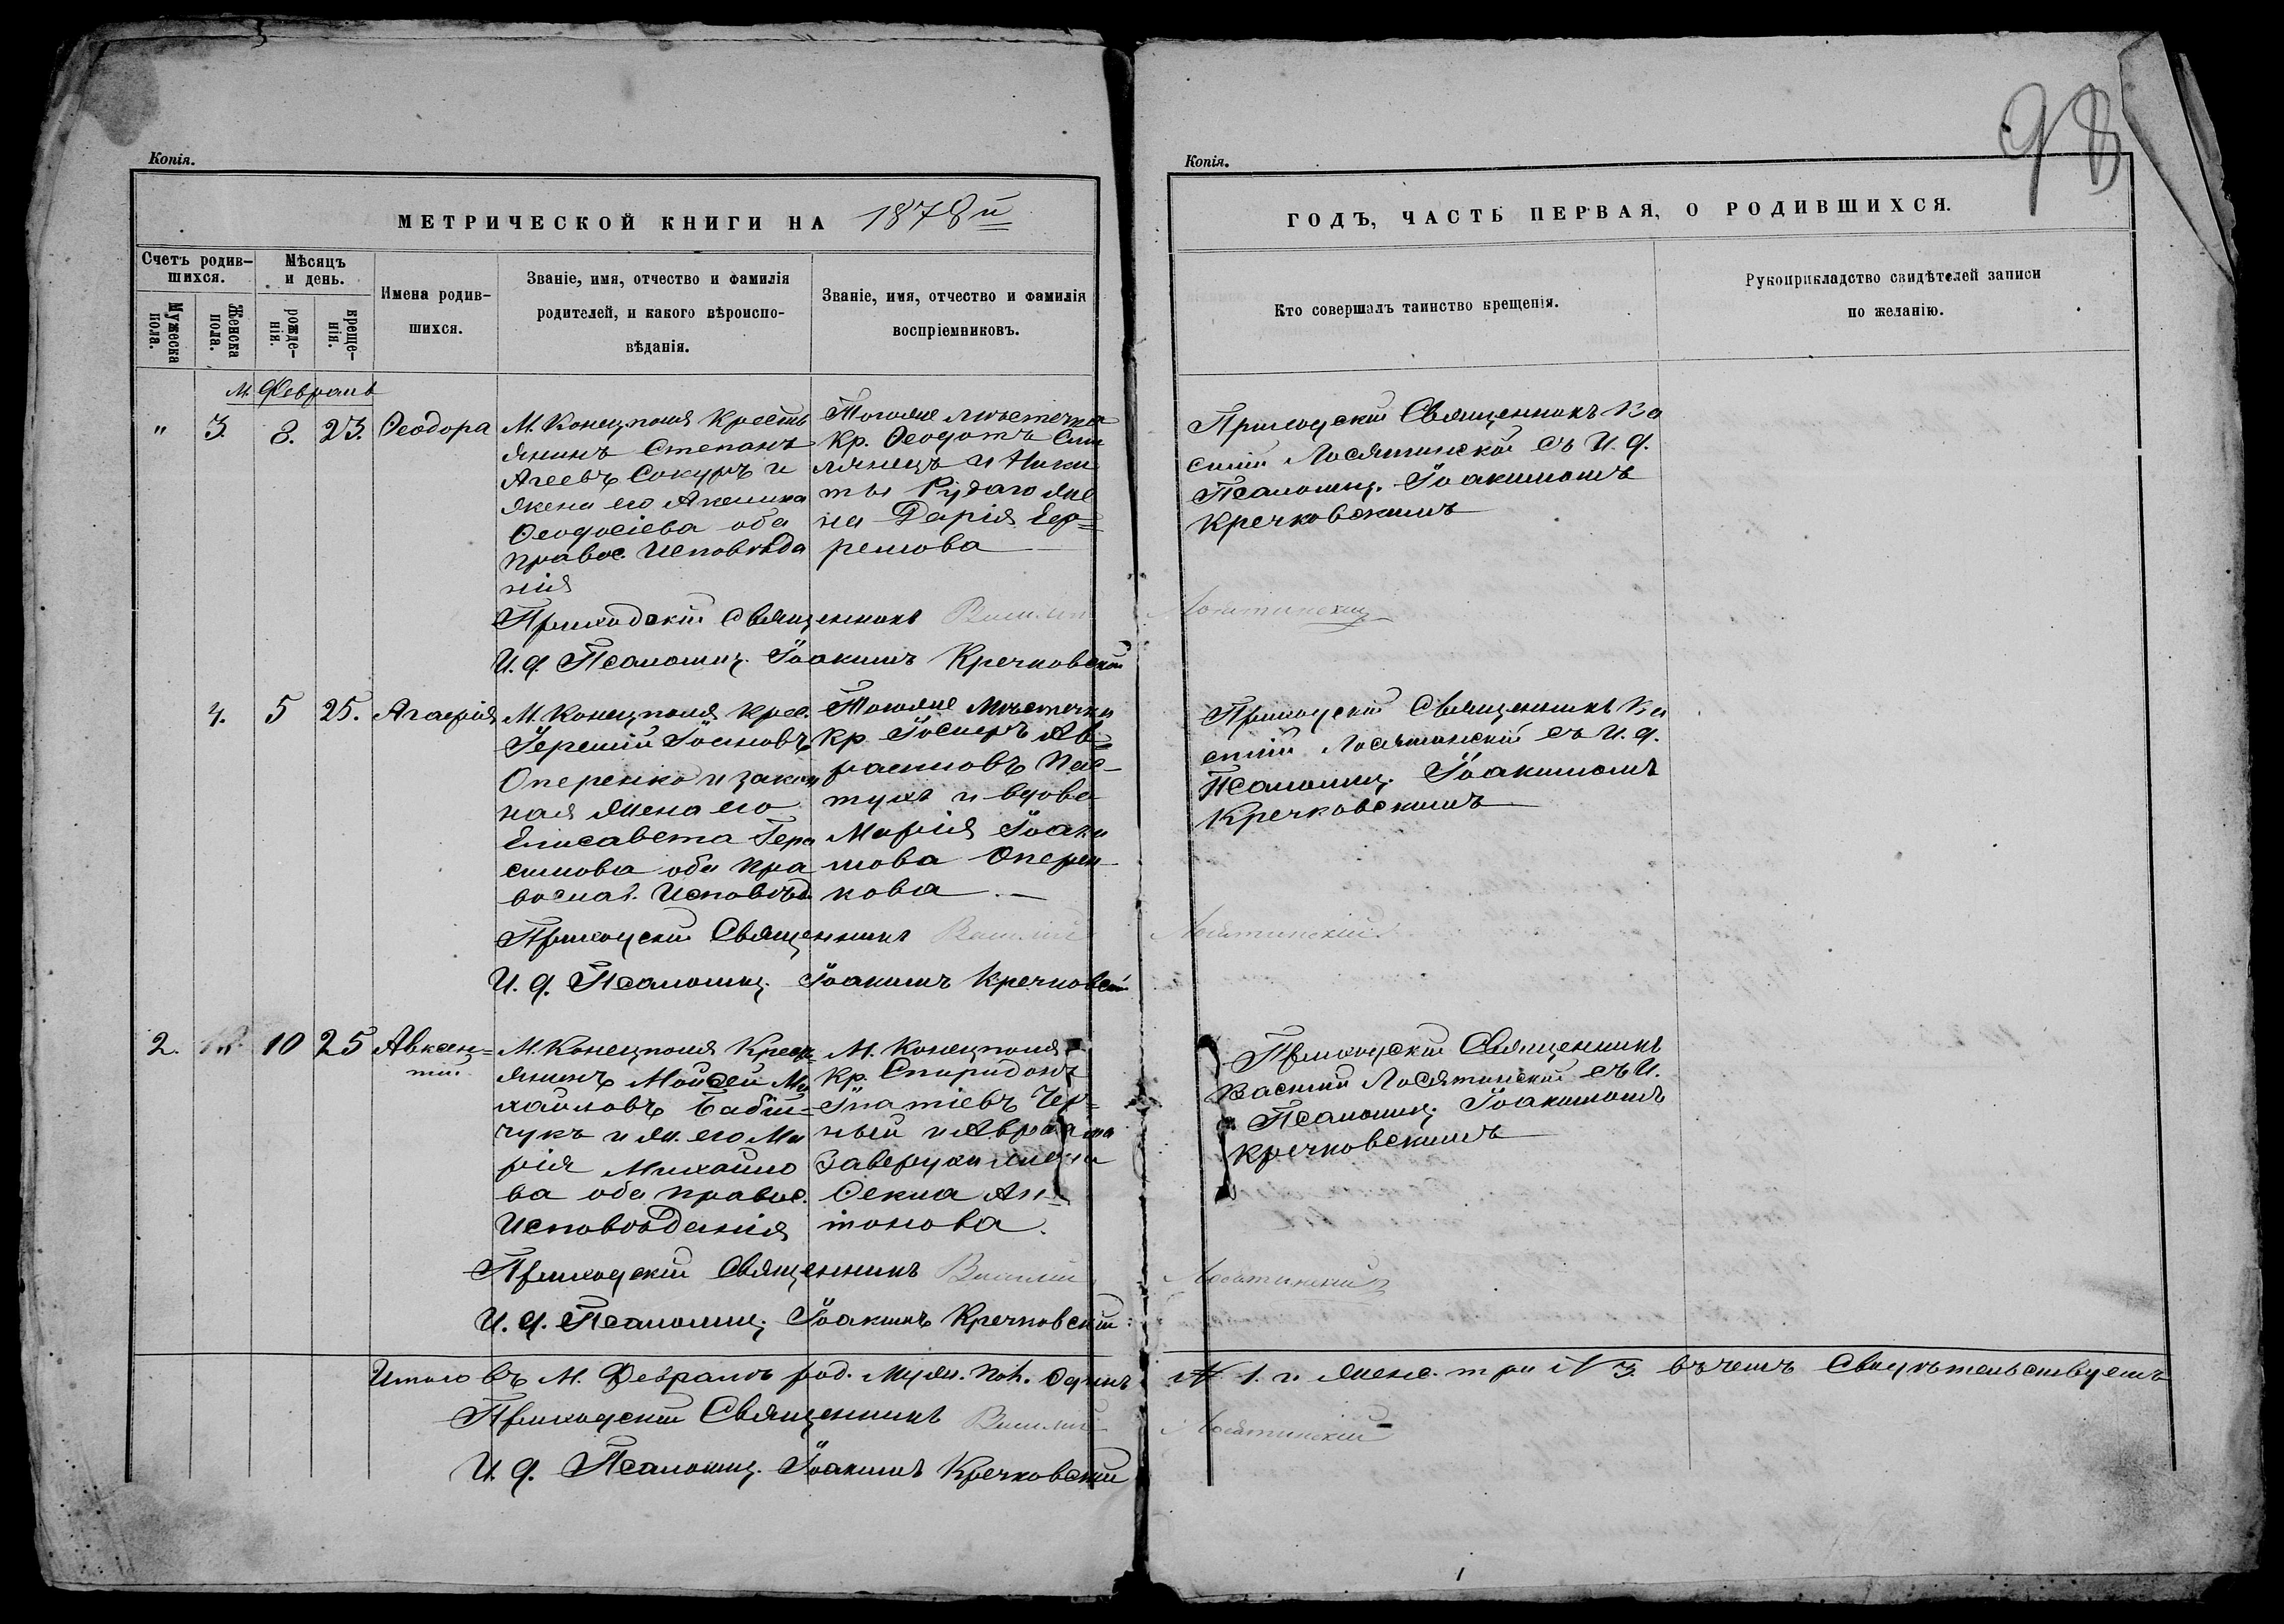 98
Копія.
МЕТРИЧЕСКОЙ КНИГИ НА 1878й
Счетъ родив-
шихся.
Мужеска
пола.
Женска
пола.
Мѣсяцъ
и день.
рожде-
нія.
креще-
нія.
Имена родив-
шихся.
Званіе, имя, отчество и фамилія
родителей, и какого вѣроиспо-
вѣданія.
Званіе, имя, отчество и фамилія
воспріемниковъ.
м. Февраль
" 3. 8. 23. Ѳеодора
М. Конецполя Кресть
янинъ Степанъ
Агеевъ Сокуръ и
жена его Акилина
Ѳеодосіева оба
правос. Исповѣда
нія
Тогоже мѣстечка
Кр. Ѳеодотъ
и Ники
ты Рудаго же
на Дарія Еф-
ремова
Приходскій Священникъ Василій Лосятинскій
И. д. Псаломщ. Іоакимъ Кречковскій
4. 5 25. Агафія
М. Конецполя крес.
Іеремій Іосиповъ
Оперенко и закон
ная жена его
Елисавета Гера
симова оба пра
вослав. Исповѣд
Тогоже Мѣстечка
Кр Іосифъ Ав-
рамовъ Пас-
тухъ и вдова
Марія Іоаки
мова Оперен
кова. —
Приходскій Священникъ Василій Лосятинскій
И. д. Псаломщ. Іоакимъ Кречковскій
2. 10 25 Авксен-
тій
М. Конецполя Крест-
янинъ Мойсей Ми
хайловъ Бабій-
чукъ и ж. его Ма
рія Михайло
ва оба правос.
Исповѣданія
М. Конецполя
Кр. Спиридонъ
Игнатіевъ Чер-
ный и Аврама
Заверухи жена
Ѳекла Ан-
тонова.
Приходскій Священникъ Василій Лосятинскій
И. д. Псаломщ. Іоакимъ Кречковскій
Итого въ М. Февралѣ род. Муж. пол. Одинъ № 1. и женс. три № 3. въ чемъ Свидѣтельствуемъ
Приходскій Священникъ Василій Лосятинскій
И. д. Псаломщ. Іоакимъ Кречковскій
Копія.
ГОДЪ, ЧАСТЬ ПЕРВАЯ, О РОДИВШИХСЯ.
Кто совершалъ таинство крещенія.
Рукоприкладство свидѣтелей записи
по желанію.
Приходскій Священникъ Ва
силій Лосятинскій съ И. д.
Псаломщ. Іоакимомъ
Кречковскимъ
Приходскій Священникъ Ва
силій Лосятинскій съ И. д.
Псаломщ. Іоакимомъ
Кречковскимъ
Приходскій Священникъ
Василій Лосятинскій съ И.
Псаломщ. Іоакимомъ
Кречковскимъ